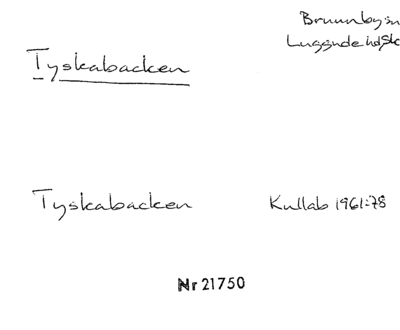 Brunnby sn
Luggude hd Sk
Tyskabacken
Tyskabacken Kullab 1961:78
Nr 21750